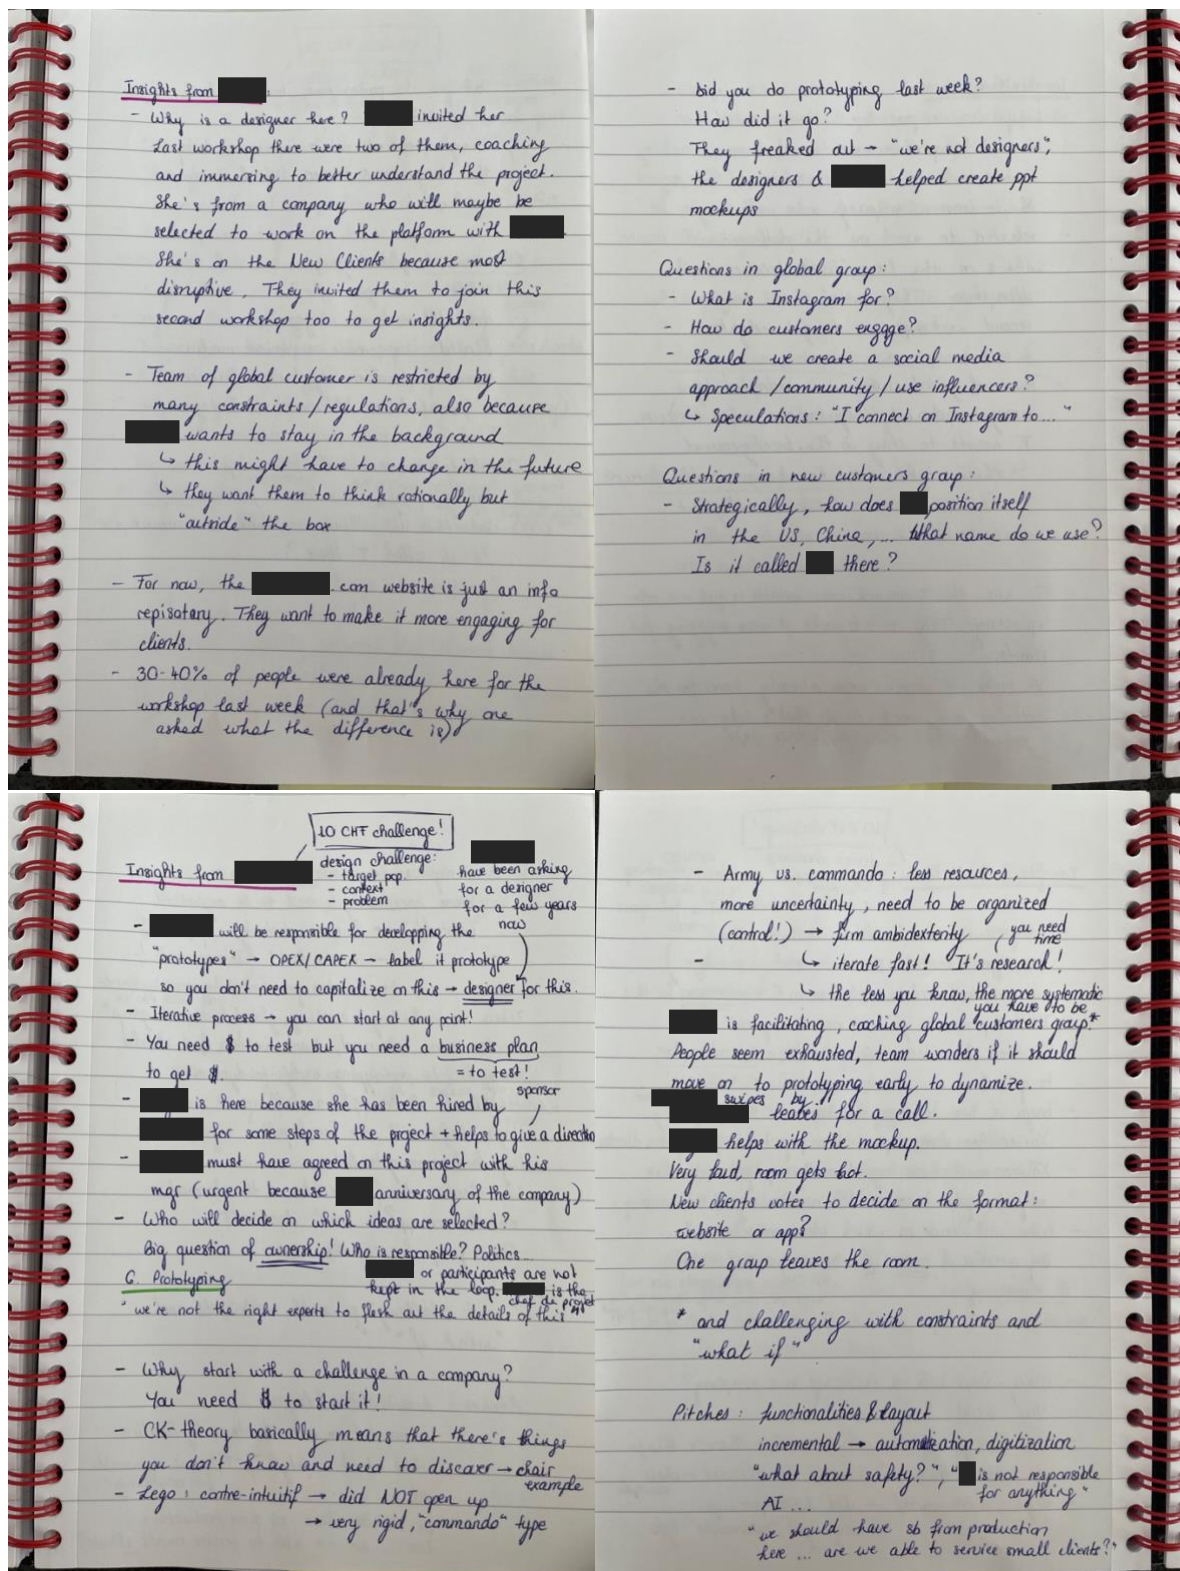 Insights from :
- Why is a designer here? invited her
Last workshop there were two of them, coaching
and immersing to better understand the project.
She's from a company who will maybe be
selected to work on the platform with
She's on the New Clients because most
disruptive. They invited them to join this
second workshop too to get insights.
- Team of global customer is restricted by
many constraints/regulations, also because
wants to stay in the background
↳ this might have to change in the future
↳ they want them to think rationally but
"outside" the box
- For now, the .com website is just an info
repisotary. They want to make it more engaging for
clients.
- 30-40% of people were already here for the
workshop last week (and that's why one
asked what the difference is)
- Did you do prototyping last week?
How did it go?
They freaked out → "we're not designers",
the designers & helped create ppt
mockups
Questions in global group:
- What is Instagram for?
- How do customers engage?
- Should we create a social media
approach /community / use influencers?
↳ Speculations: "I connect on Instagram to..."
Questions in new customers group:
- Strategically, how does position itself
in the US, China, ... What name do we use?
Is it called there?
10 CHF challenge!
Insights from
design challenge:
- target pop.
- context
- problem
have been asking
for a designer
for a few years
now
- will be responsible for developping the
"prototypes" → OPEX/CAPEX → label it prototype
so you don't need to capitalize on this → designer for this.
- Iterative process → you can start at any point!
- You need $ to test but you need a business plan
to get $. = to test!
sponsor
- is here because she has been hired by
for some steps of the project + helps to give a direction
- must have agreed on this project with his
mgr (urgent because anniversary of the company)
- Who will decide on which ideas are selected?
Big question of ownership! Who is responsible? Politics...
or participants are not
kept in the loop. is the
chef de projet
6. Prototyping
"we're not the right experts to flesh out the details of this"
- Why start with a challenge in a company?
You need $ to start it!
- CK-theory basically means that there's things
you don't know and need to discover → chair
example
- Lego: contre-intuitif → did NOT open up
→ very rigid, "commando" type
- Army vs. commando: less resources,
more uncertainty, need to be organized
(control!) → firm ambidexterity, you need
time
- ↳ iterate fast! It's research!
↳ the less you know, the more systematic
you have to be
is facilitating, coaching global customers group.*
People seem exhausted, team wonders if it should
move on to prototyping early to dynamize.
swipes by.
leaves for a call.
helps with the mockup.
Very loud, room gets hot.
New clients votes to decide on the format:
website or app?
One group leaves the room.
* and challenging with constraints and
"what if"
Pitches: functionalities & layout
incremental → automatization, digitization
"what about safety?", " is not responsible
for anything"
AI ...
"we should have sb from production
here ... are we able to service small clients?"